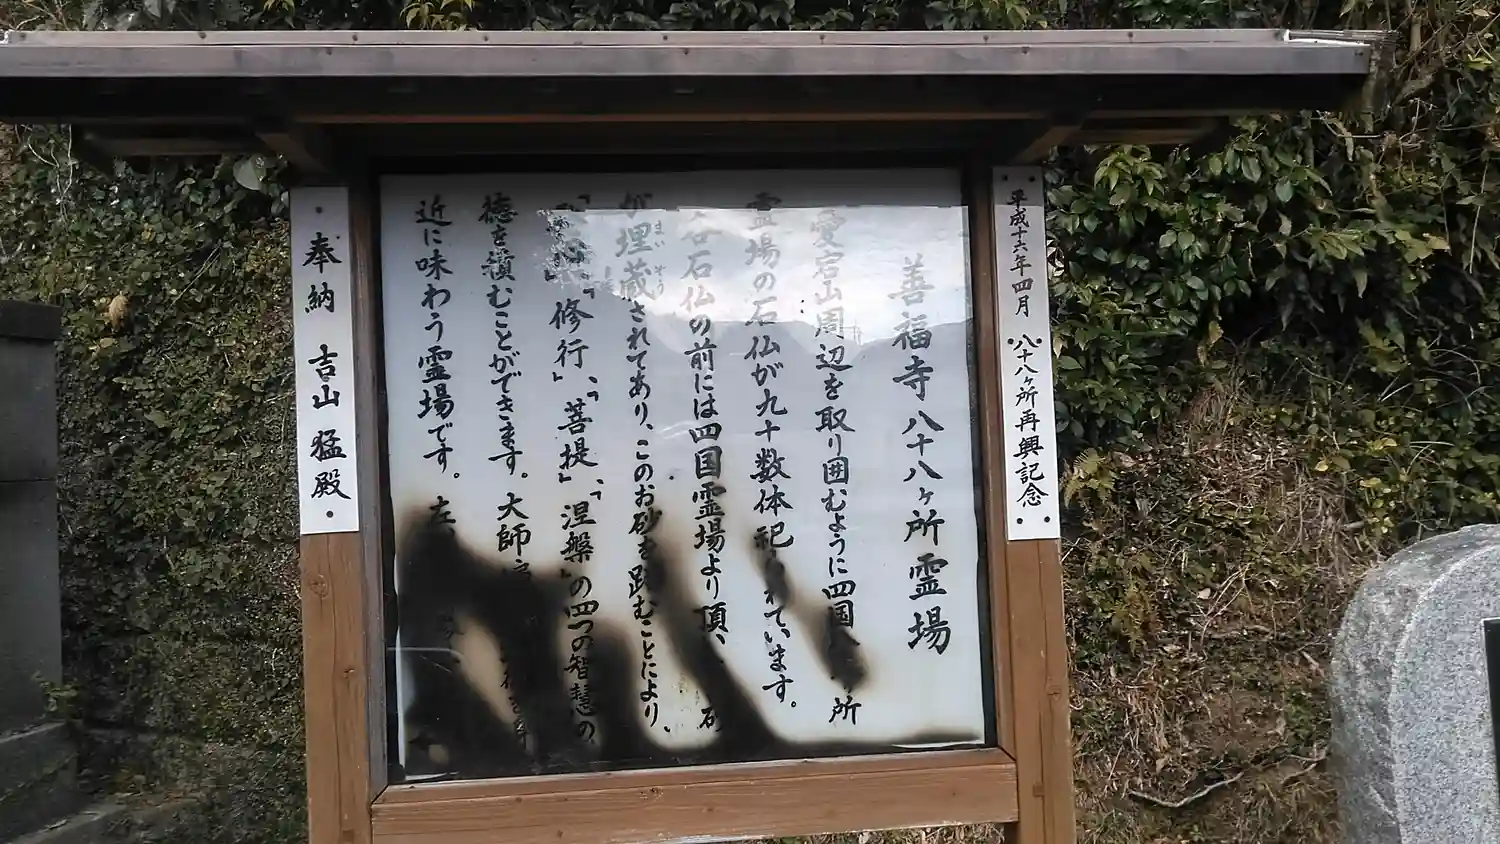 平成十六年四月 八十八ヶ所再興記念
善福寺八十八ヶ所霊場
愛宕山周辺を取り囲むように四国 所
霊場の石仏が九十数体祀 れています。
各石仏の前には四国霊場より頂 砂
が埋蔵されてあり、このお砂を踏むことにより、
まいぞう
」、「修行」、「菩提」、「涅槃」の四つの智慧の
徳を積むことができます。大師
近に味わう霊場です。
奉納 吉山 猛殿